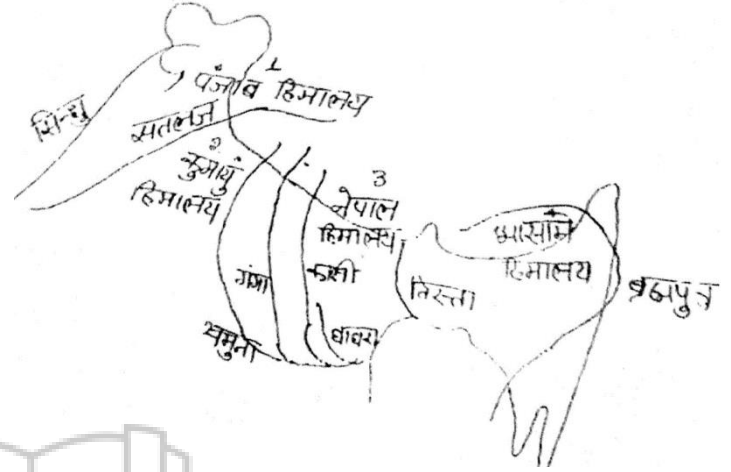 1
पंजाब हिमालय
सिन्धु
सतलज
2
कुमायुं
हिमालय
3
नेपाल
हिमालय
आसाम
हिमालय
गंगा
काली
तिस्ता
ब्रह्मपुत्र
यमुना
घाघरा